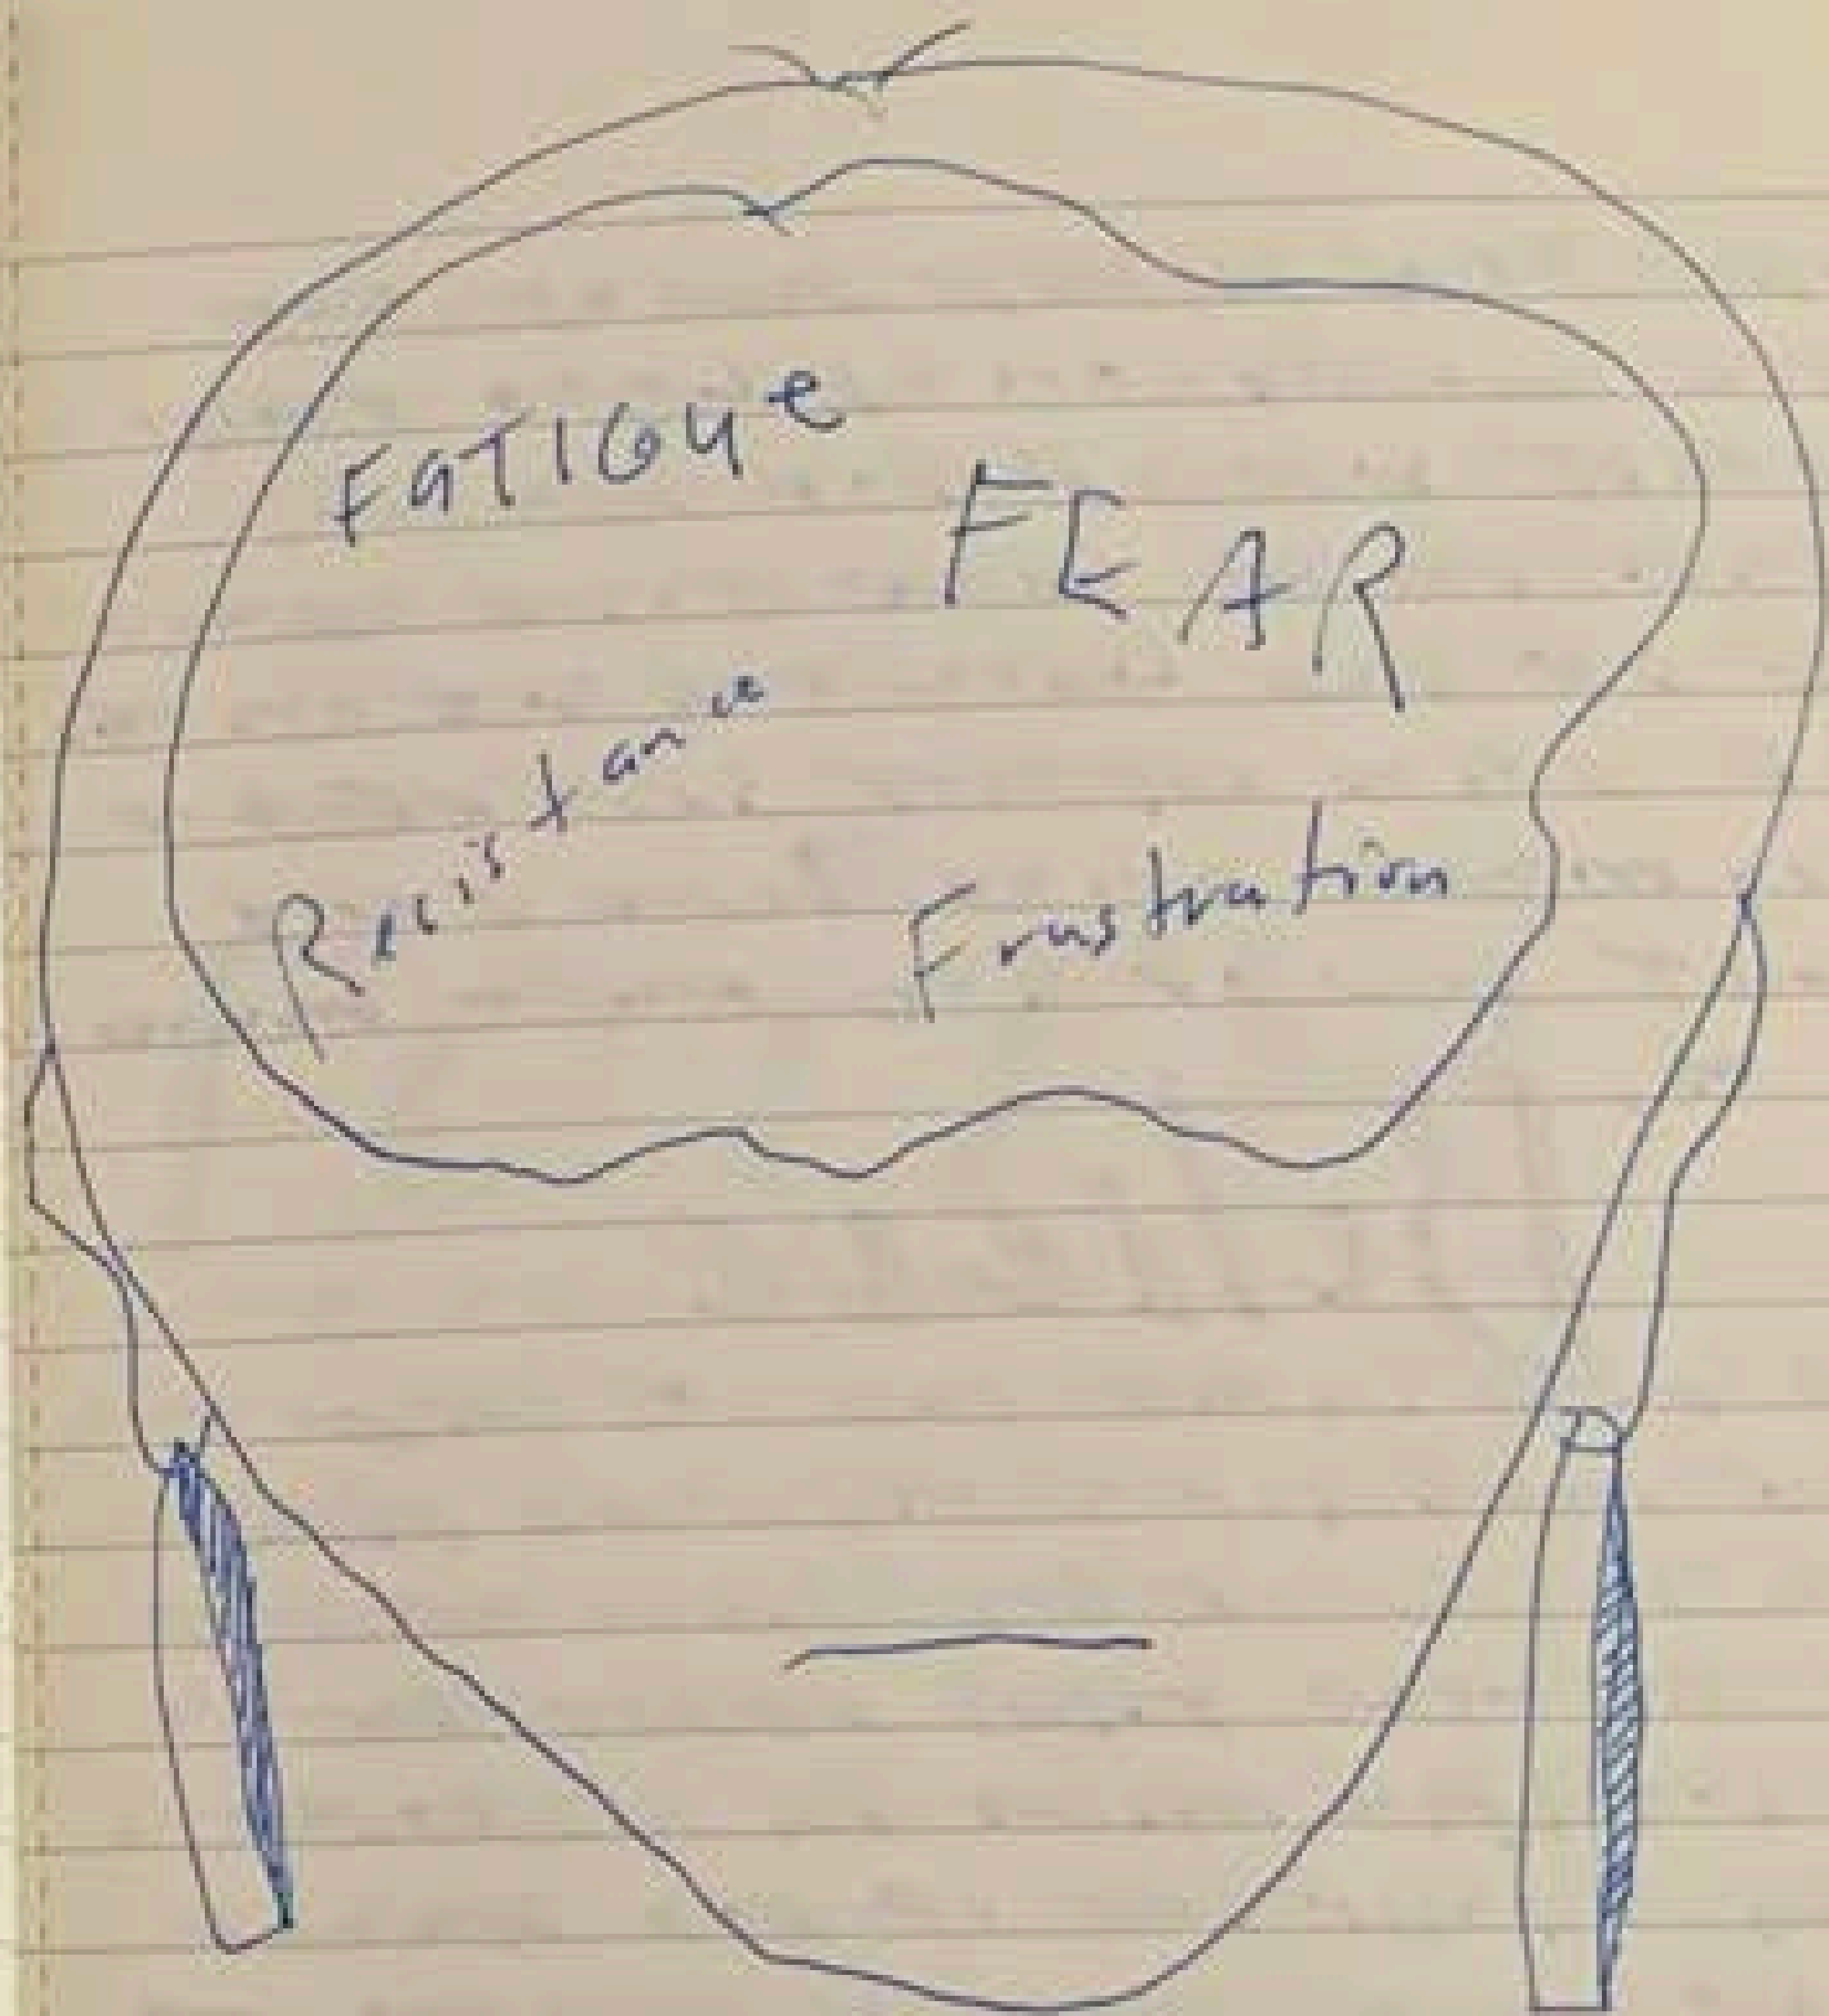 FaTIGUe
FEAR
Resistance
Frustration